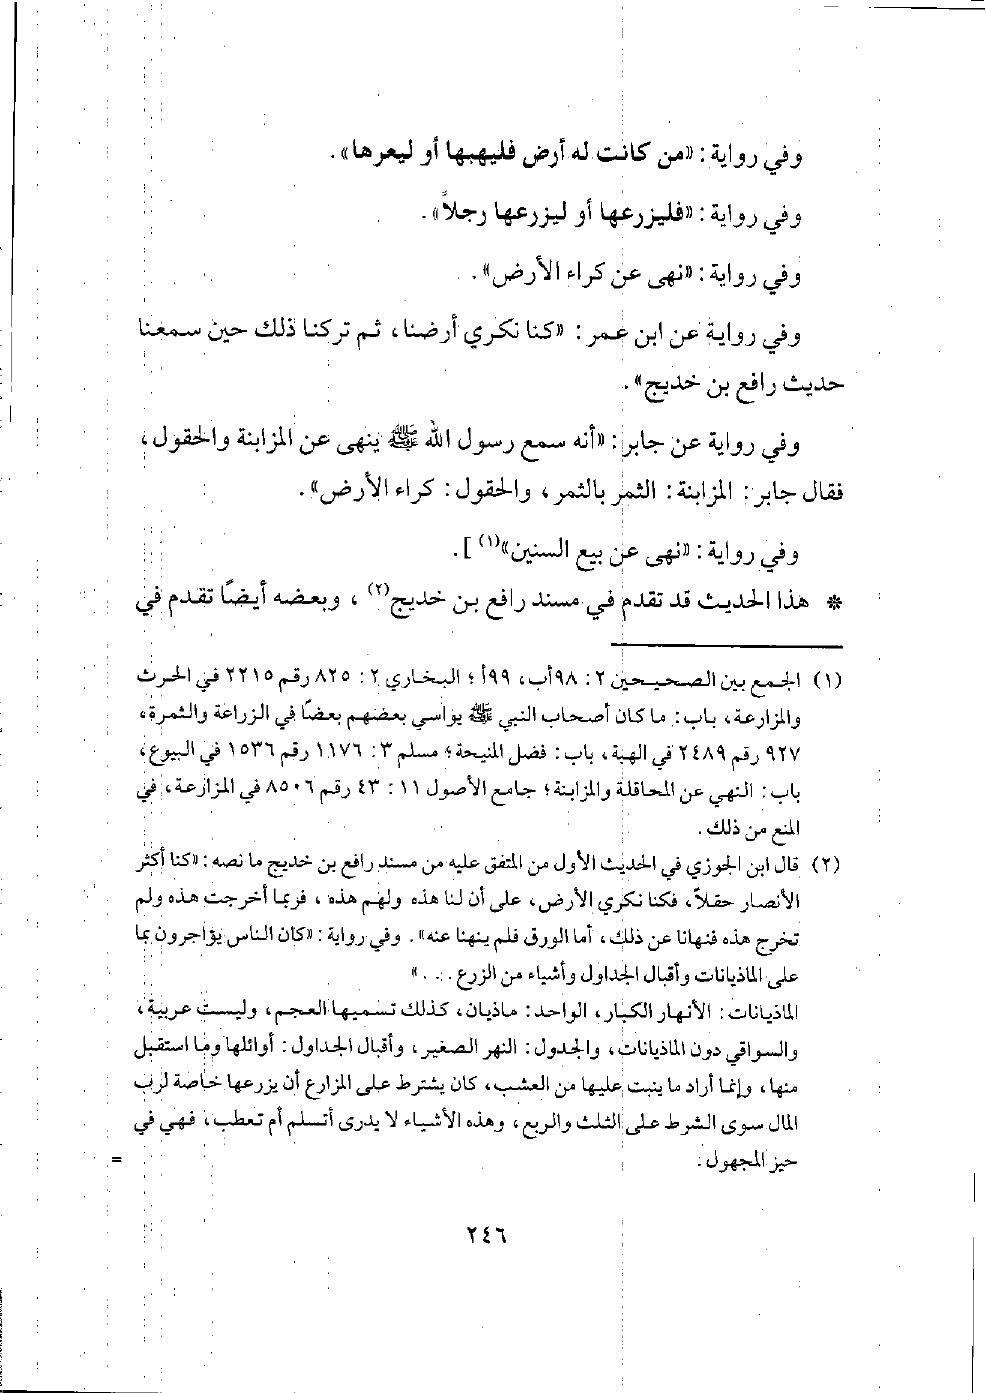 وفي رواية: «من كانت له أرض فليهبها أو ليعرها».
وفي رواية: «فليزرعها أو ليزرعها رجلاً».
وفي رواية: «نهى عن كراء الأرض».
وفي رواية عن ابن عمر: «كنا نكري أرضنا، ثم تركنا ذلك حين سمعنا
حديث رافع بن خديج».
وفي رواية عن جابر: «أنه سمع رسول الله ﷺ ينهى عن المزابنة والحقول،
فقال جابر: المزابنة: الثمر بالثمر، والحقول: كراء الأرض».
وفي رواية: «نهى عن بيع السنين»(١)].
* هذا الحديث قد تقدم في مسند رافع بن خديج(٢)، وبعضه أيضًا تقدم في
(١) الجمع بين الصحيحين ٢: ٩٨أب، ٩٩أ؛ البخاري ٢: ٨٢٥ رقم ٢٢١٥ في الحرث
والمزارعة، باب: ما كان أصحاب النبي ﷺ يواسي بعضهم بعضًا في الزراعة والثمرة،
٩٢٧ رقم ٢٤٨٩ في الهبة، باب: فضل المنيحة؛ مسلم ٣: ١١٧٦ رقم ١٥٣٦ في البيوع،
باب: النهي عن المحاقلة والمزابنة؛ جامع الأصول ١١: ٤٣ رقم ٨٥٠٦ في المزارعة، في
المنع من ذلك.
(٢) قال ابن الجوزي في الحديث الأول من المتفق عليه من مسند رافع بن خديج ما نصه: «كنا أكثر
الأنصار حقلاً، فكنا نكري الأرض، على أن لنا هذه ولهم هذه، فربما أخرجت هذه ولم
تخرج هذه فنهانا عن ذلك، أما الورق فلم ينهنا عنه». وفي رواية: «كان الناس يؤاجرون بما
على الماذيانات وأقبال الجداول وأشياء من الزرع...»
الماذيانات: الأنهار الكبار، الواحد: ماذيان، كذلك تسميها العجم، وليست عربية،
والسواقي دون الماذيانات، والجدول: النهر الصغير، وأقبال الجداول: أوائلها وما استقبل
منها، وإنما أراد ما ينبت عليها من العشب، كان يشترط على المزارع أن يزرعها خاصة لرب
المال سوى الشرط على الثلث والربع، وهذه الأشياء لا يدرى أتسلم أم تعطب، فهي في
حيز المجهول. =
٢٤٦